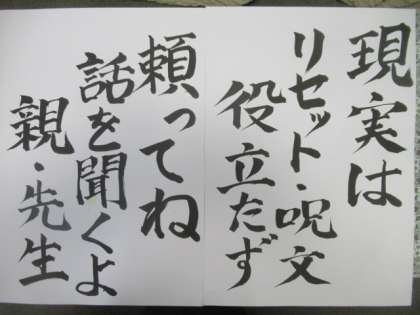 現実は
リセット・呪文
役立たず
頼ってね
話を聞くよ
親・先生